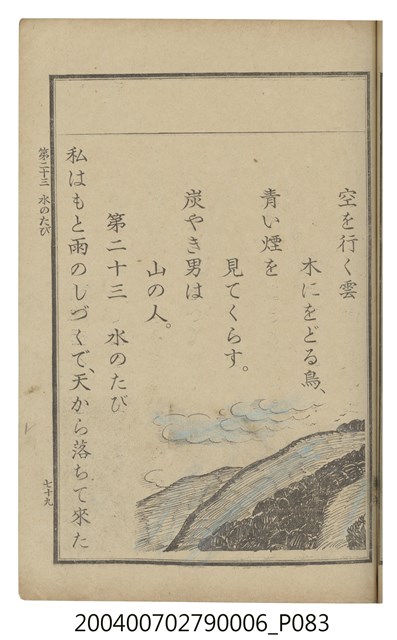 空を行く雲
木にをどる鳥、
青い煙を
見てくらす。
炭やき男は
山の人。
第二十三 水のたび
私はもと雨のしづくで、天から落ちて來た
第二十三 水のたび
七十九
200400702790006_P083